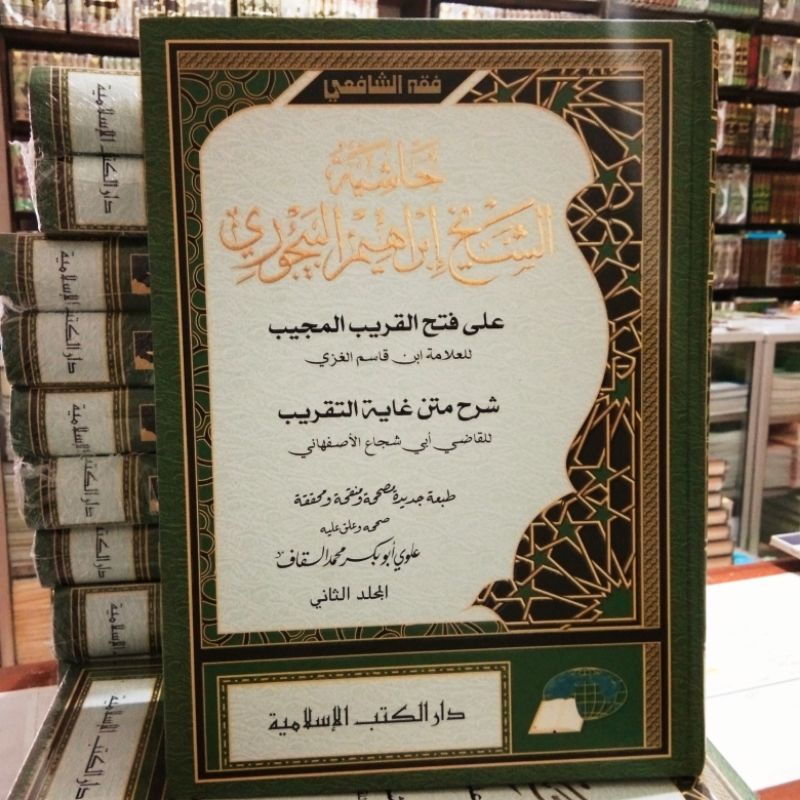 فقه الشافعي
حَاشِيَة
الشَّيْخ إِبْرَاهِيْم البَيْجُوْرِي
على فتح القريب المجيب
للعلامة ابن قاسم الغزي
شرح متن غاية التقريب
للقاضي أبي شجاع الأصفهاني
طبعة جديدة مصححة ومنقحة ومحققة
صححه وعلق عليه
علوي أبو بكر محمد السقاف
المجلد الثاني
دار الكتب الإسلامية
دار الكتب الإسلامية
دار الكتب الإسلامية
دار الكتب الإسلامية
دار الكتب الإسلامية
دار الكتب الإسلامية
دار الكتب الإسلامية
دار الكتب الإسلامية
دار الكتب الإسلامية
دار الكتب الإسلامية